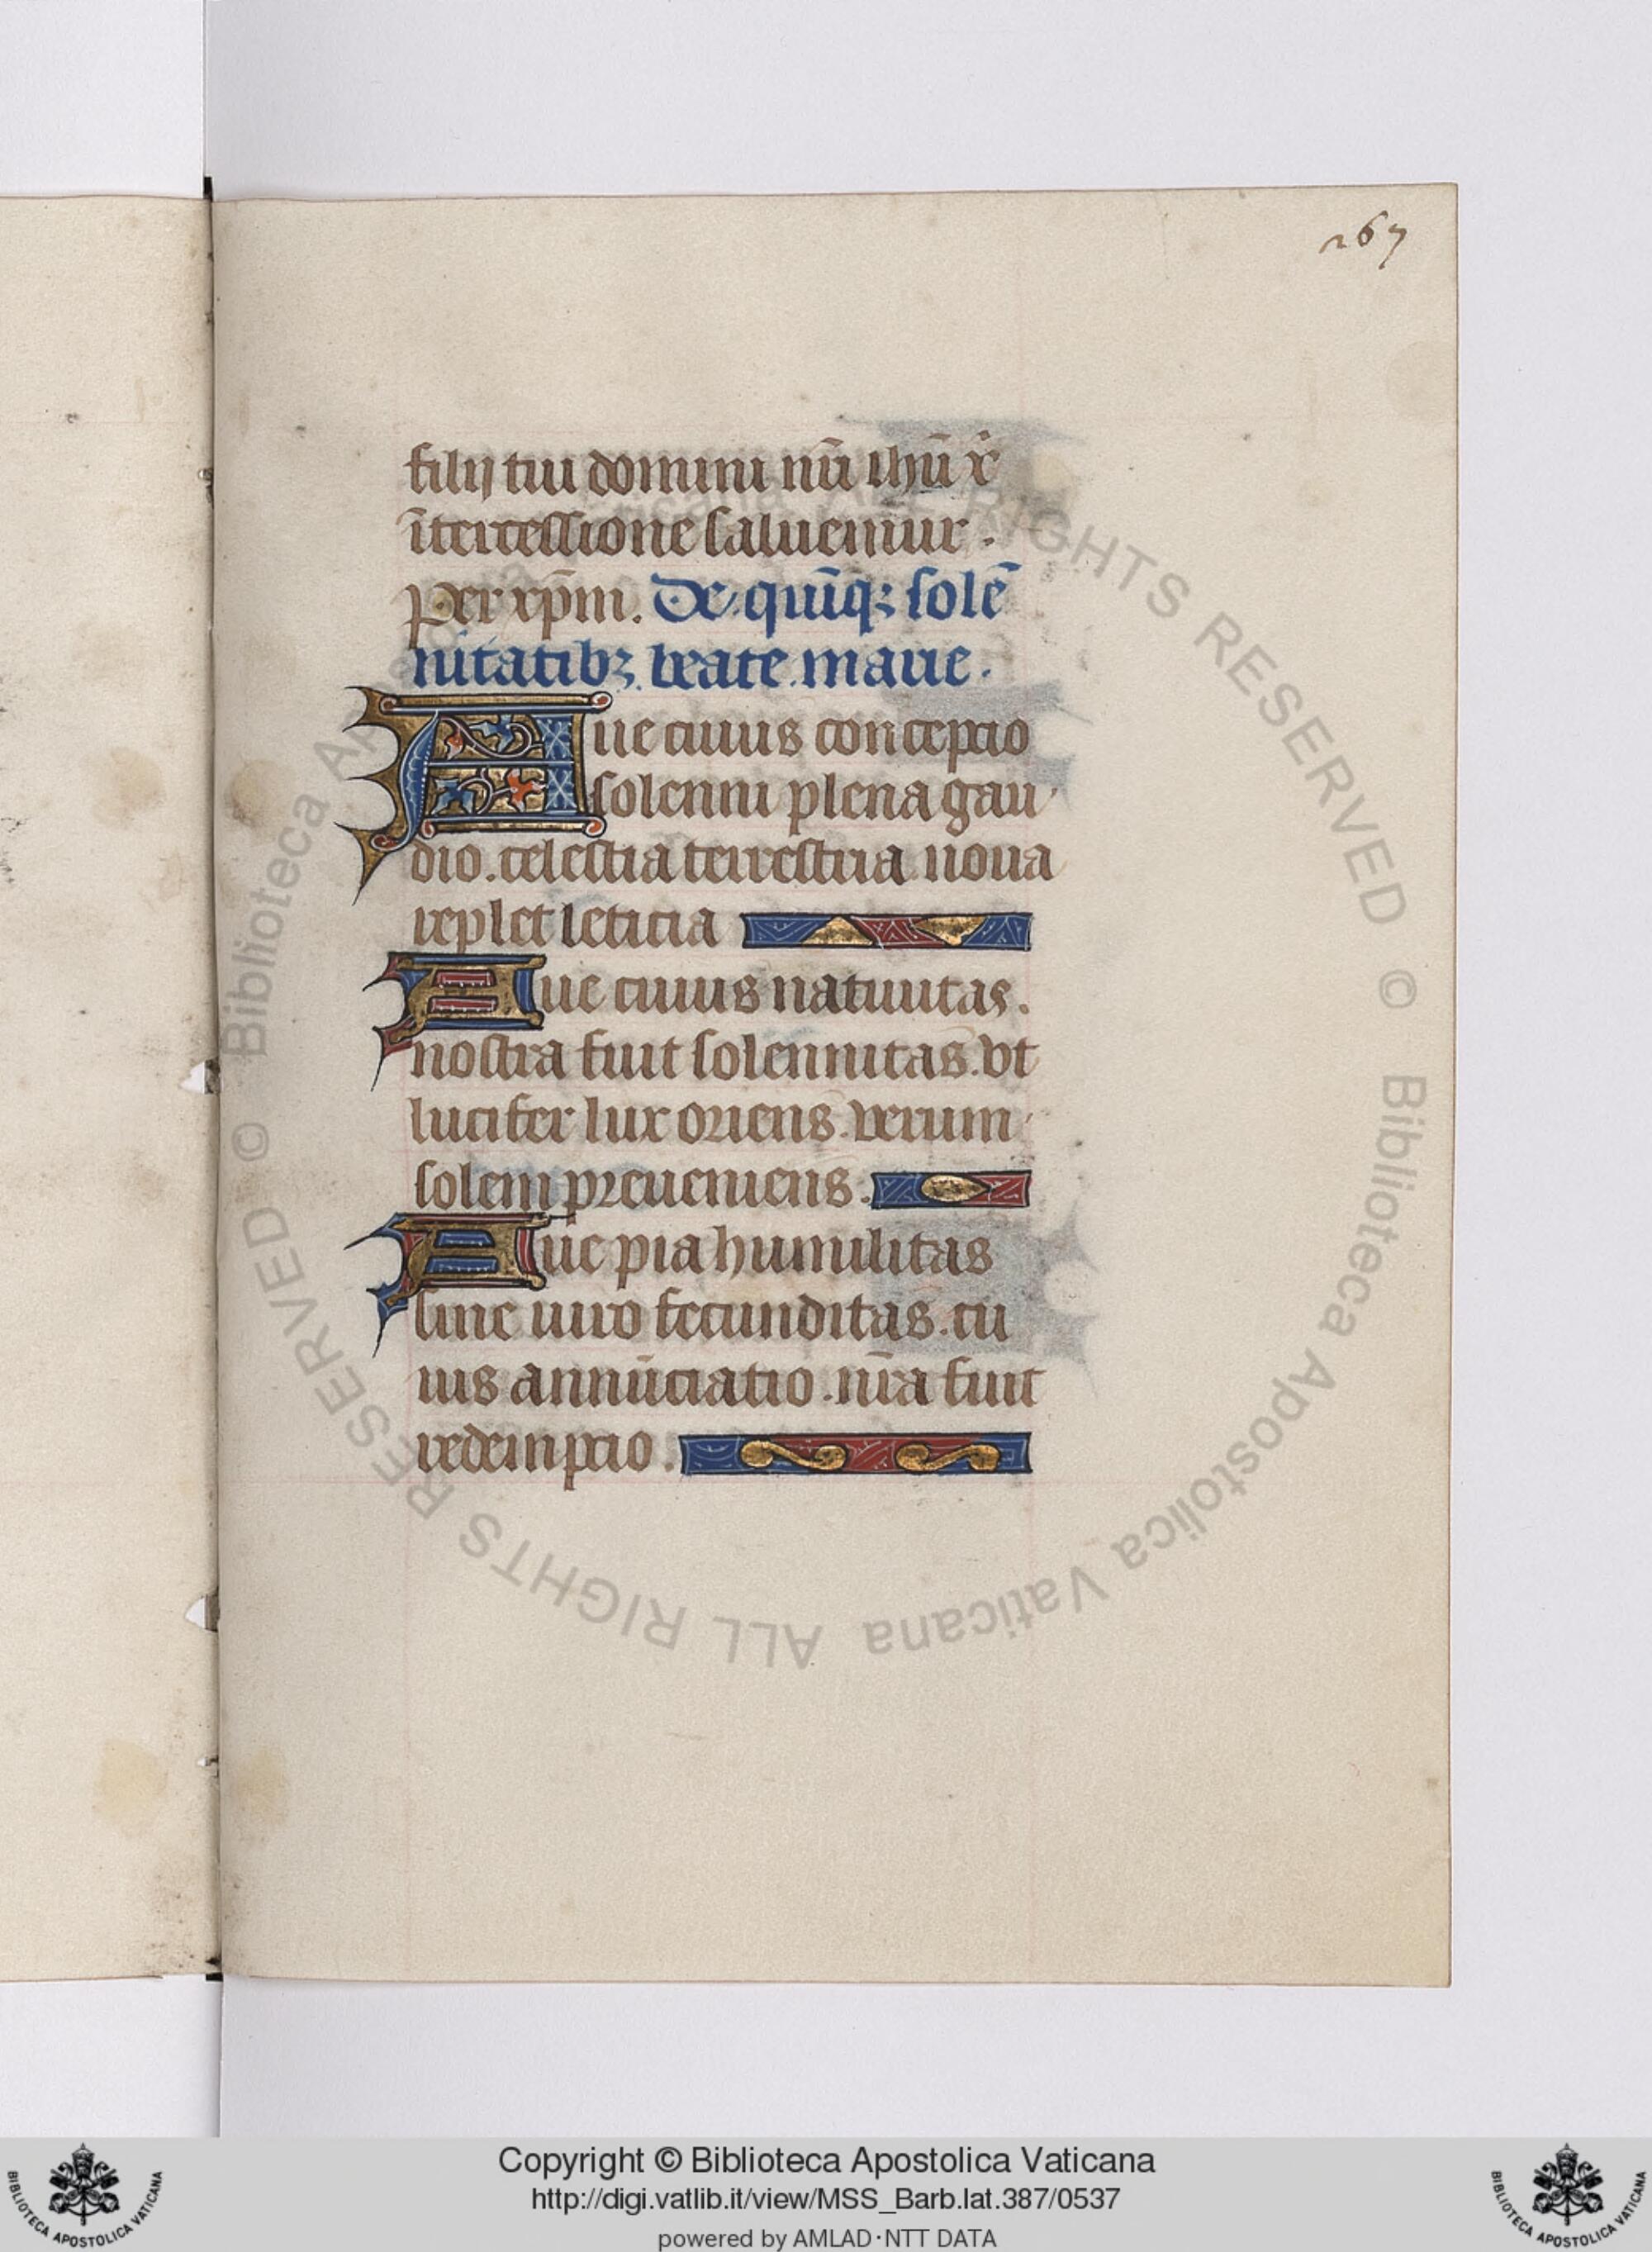 267
filij tui domini nr̄i ihū x̄
ītercessione saluemur.
per xp̄m. De quīq; solē
nitatib; beate marie.
Aue cuius conceptio
solenni plena gau
dio. celestia terrestria noua
replet leticia
Aue cuius natiuitas.
nostra fuit solennitas. vt
lucifer lux oriens. verum
solem preueniens.
Aue pia humilitas
sine uiro fecunditas. cu
ius annūciatio. nr̄a fuit
redemptio.
© Biblioteca Apostolica Vaticana ALL RIGHTS RESERVED © Biblioteca Apostolica Vaticana ALL RIGHTS RESERVED
Copyright © Biblioteca Apostolica Vaticana
http://digi.vatlib.it/view/MSS_Barb.lat.387/0537
powered by AMLAD·NTT DATA
BIBLIOTECA APOSTOLICA VATICANA
BIBLIOTECA APOSTOLICA VATICANA